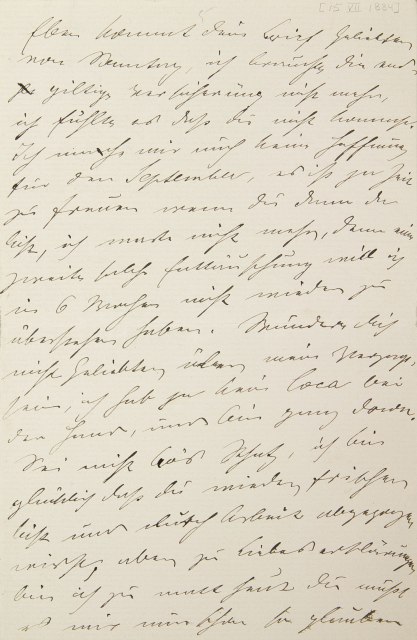 [15 VII 1884]
Eben kommt dein Brief Geliebter
von Sonntag, ich brauchte die end
giltige Versicherung nicht mehr,
ich fühlte es daß du nicht kommst.
Ich mache mir auch keine Hoffnung
für den September, es ist ja Zeit
zu freuen wenn du dann da
bist, ich warte nicht mehr, denn eine
zweite solche Enttäuschung will ich
in 6 Wochen nicht wieder zu
überstehen haben. Wundere dich
nicht Geliebter über mein Verzagt
sein, ich hab ja kein Coca bei
der Hand, und bin ganz down.
Sei nicht bös Schatz, ich bin
glücklich daß du wieder frischer
bist und durch Arbeit abgezogen
wirst, aber zu Liebeserklärungen
bin ich zu matt heut du mußt
es mir nun schon so glauben